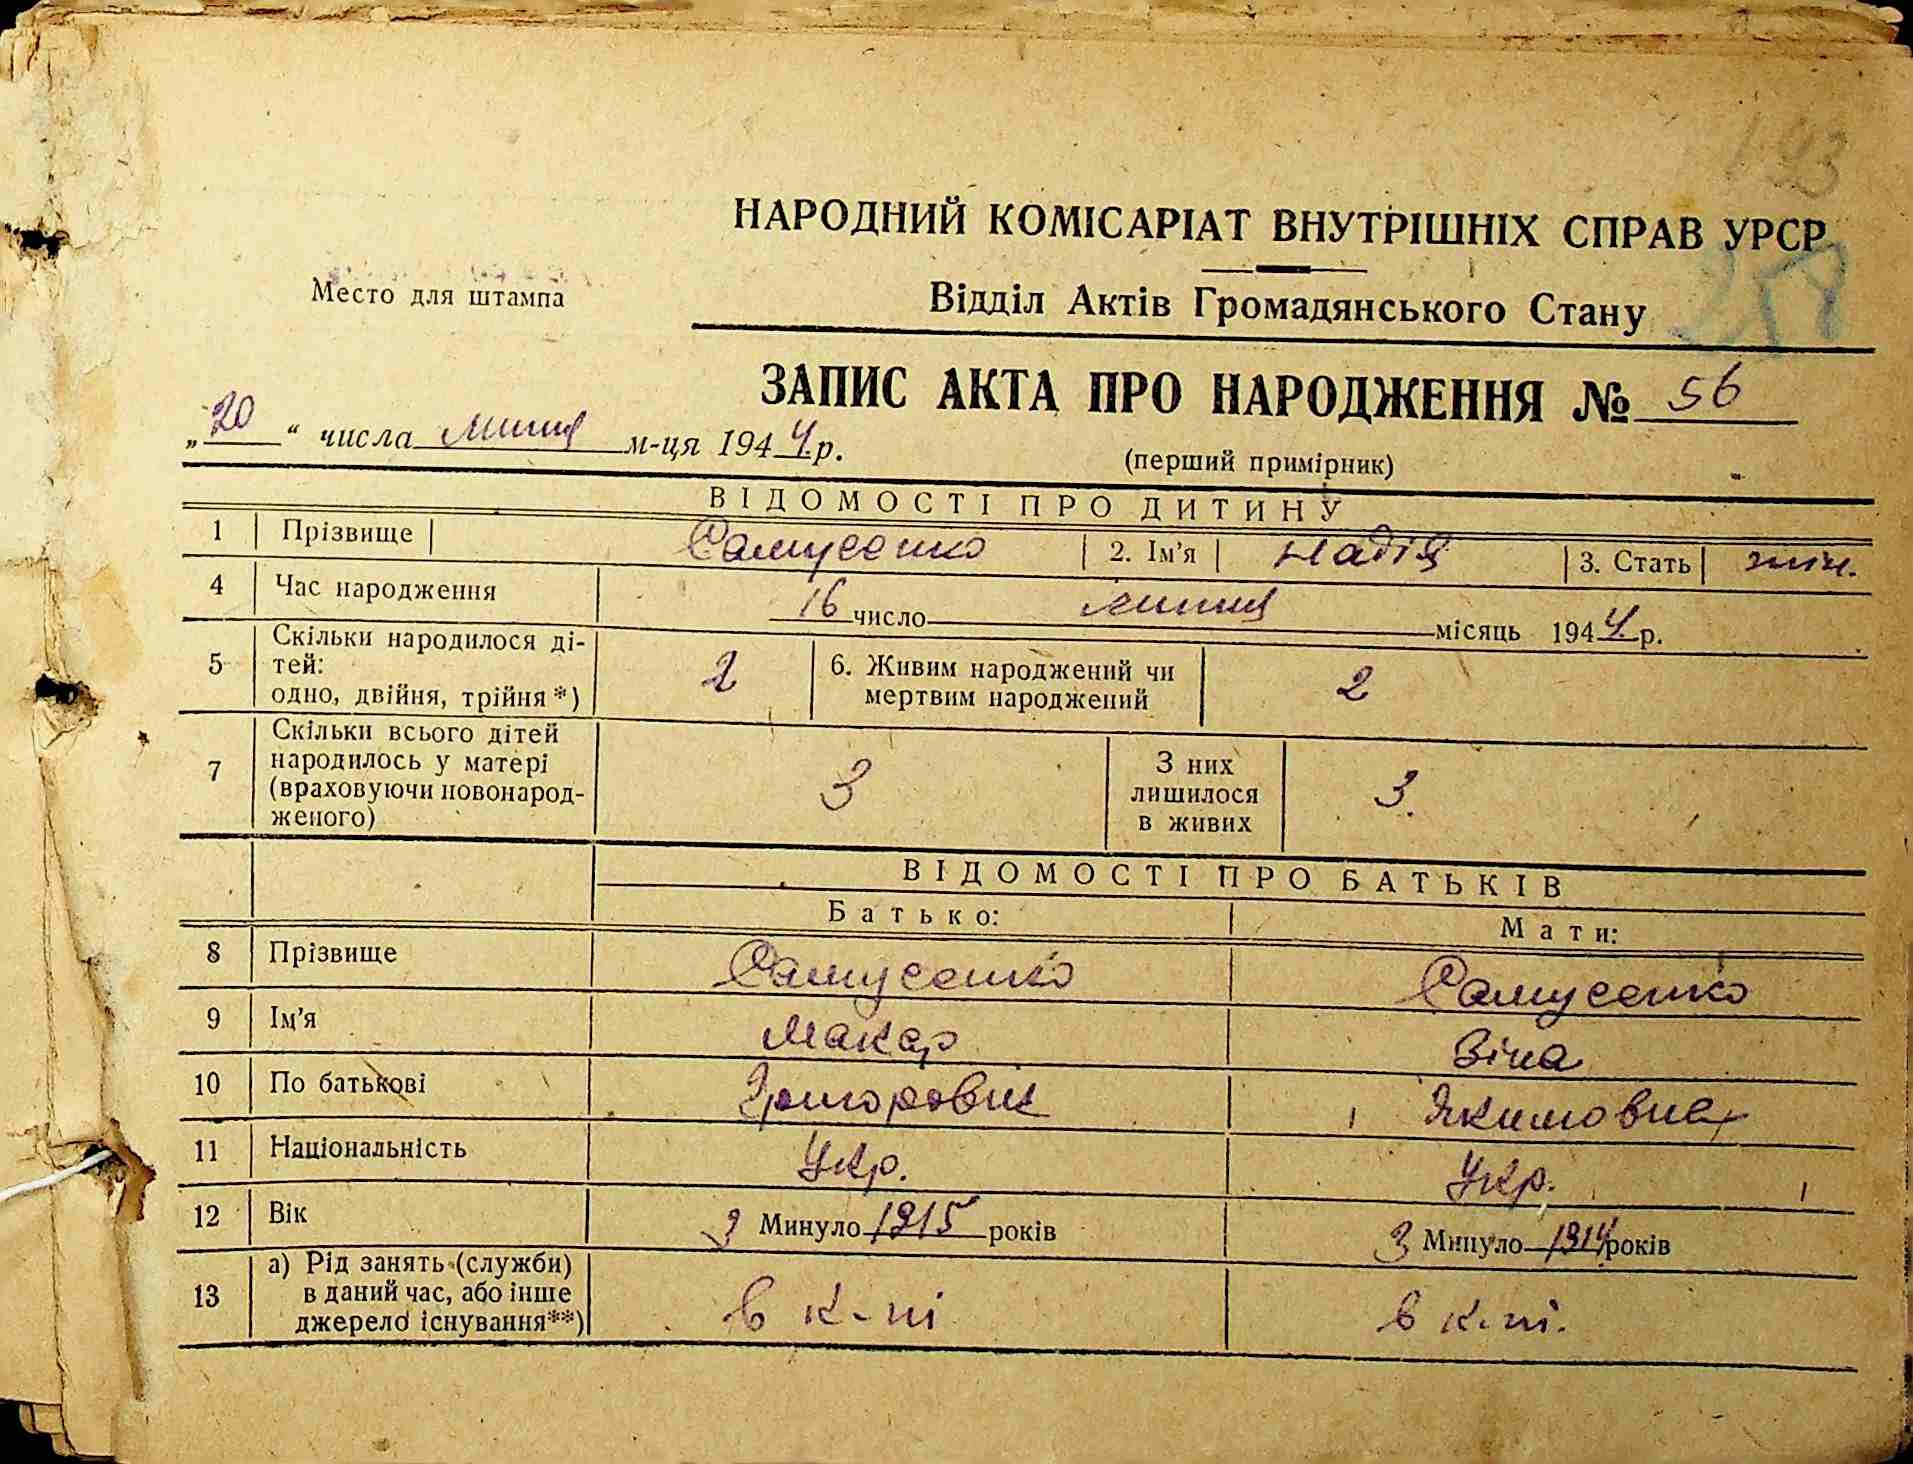 193
НАРОДНИЙ КОМІСАРІАТ ВНУТРІШНІХ СПРАВ УРСР
258
Место для штампа
Відділ Актів Громадянського Стану
ЗАПИС АКТА ПРО НАРОДЖЕННЯ № 56
„20“ числа липня м-ця 1944 р.
(перший примірник)
ВІДОМОСТІ ПРО ДИТИНУ
1 Прізвище Самусенко 2. Ім'я Надія 3. Стать жін.
4 Час народження 16 число липня місяць 1944 р.
5 Скільки народилося ді-
тей:
одно, двійня, трійня *) 2 6. Живим народжений чи
мертвим народжений 2
7 Скільки всього дітей
народилось у матері
(враховуючи новонарод-
женого) 3 З них
лишилося
в живих 3.
ВІДОМОСТІ ПРО БАТЬКІВ
Батько: Мати:
8 Прізвище Самусенко Самусенко
9 Ім'я Макар Зіна
10 По батькові Григорович Якимовна
11 Національність Укр. Укр.
12 Вік З Минуло 1915 років З Минуло 1914 років
13 а) Рід занять (служби)
в даний час, або інше
джерело існування**) в к-пі в к-пі.